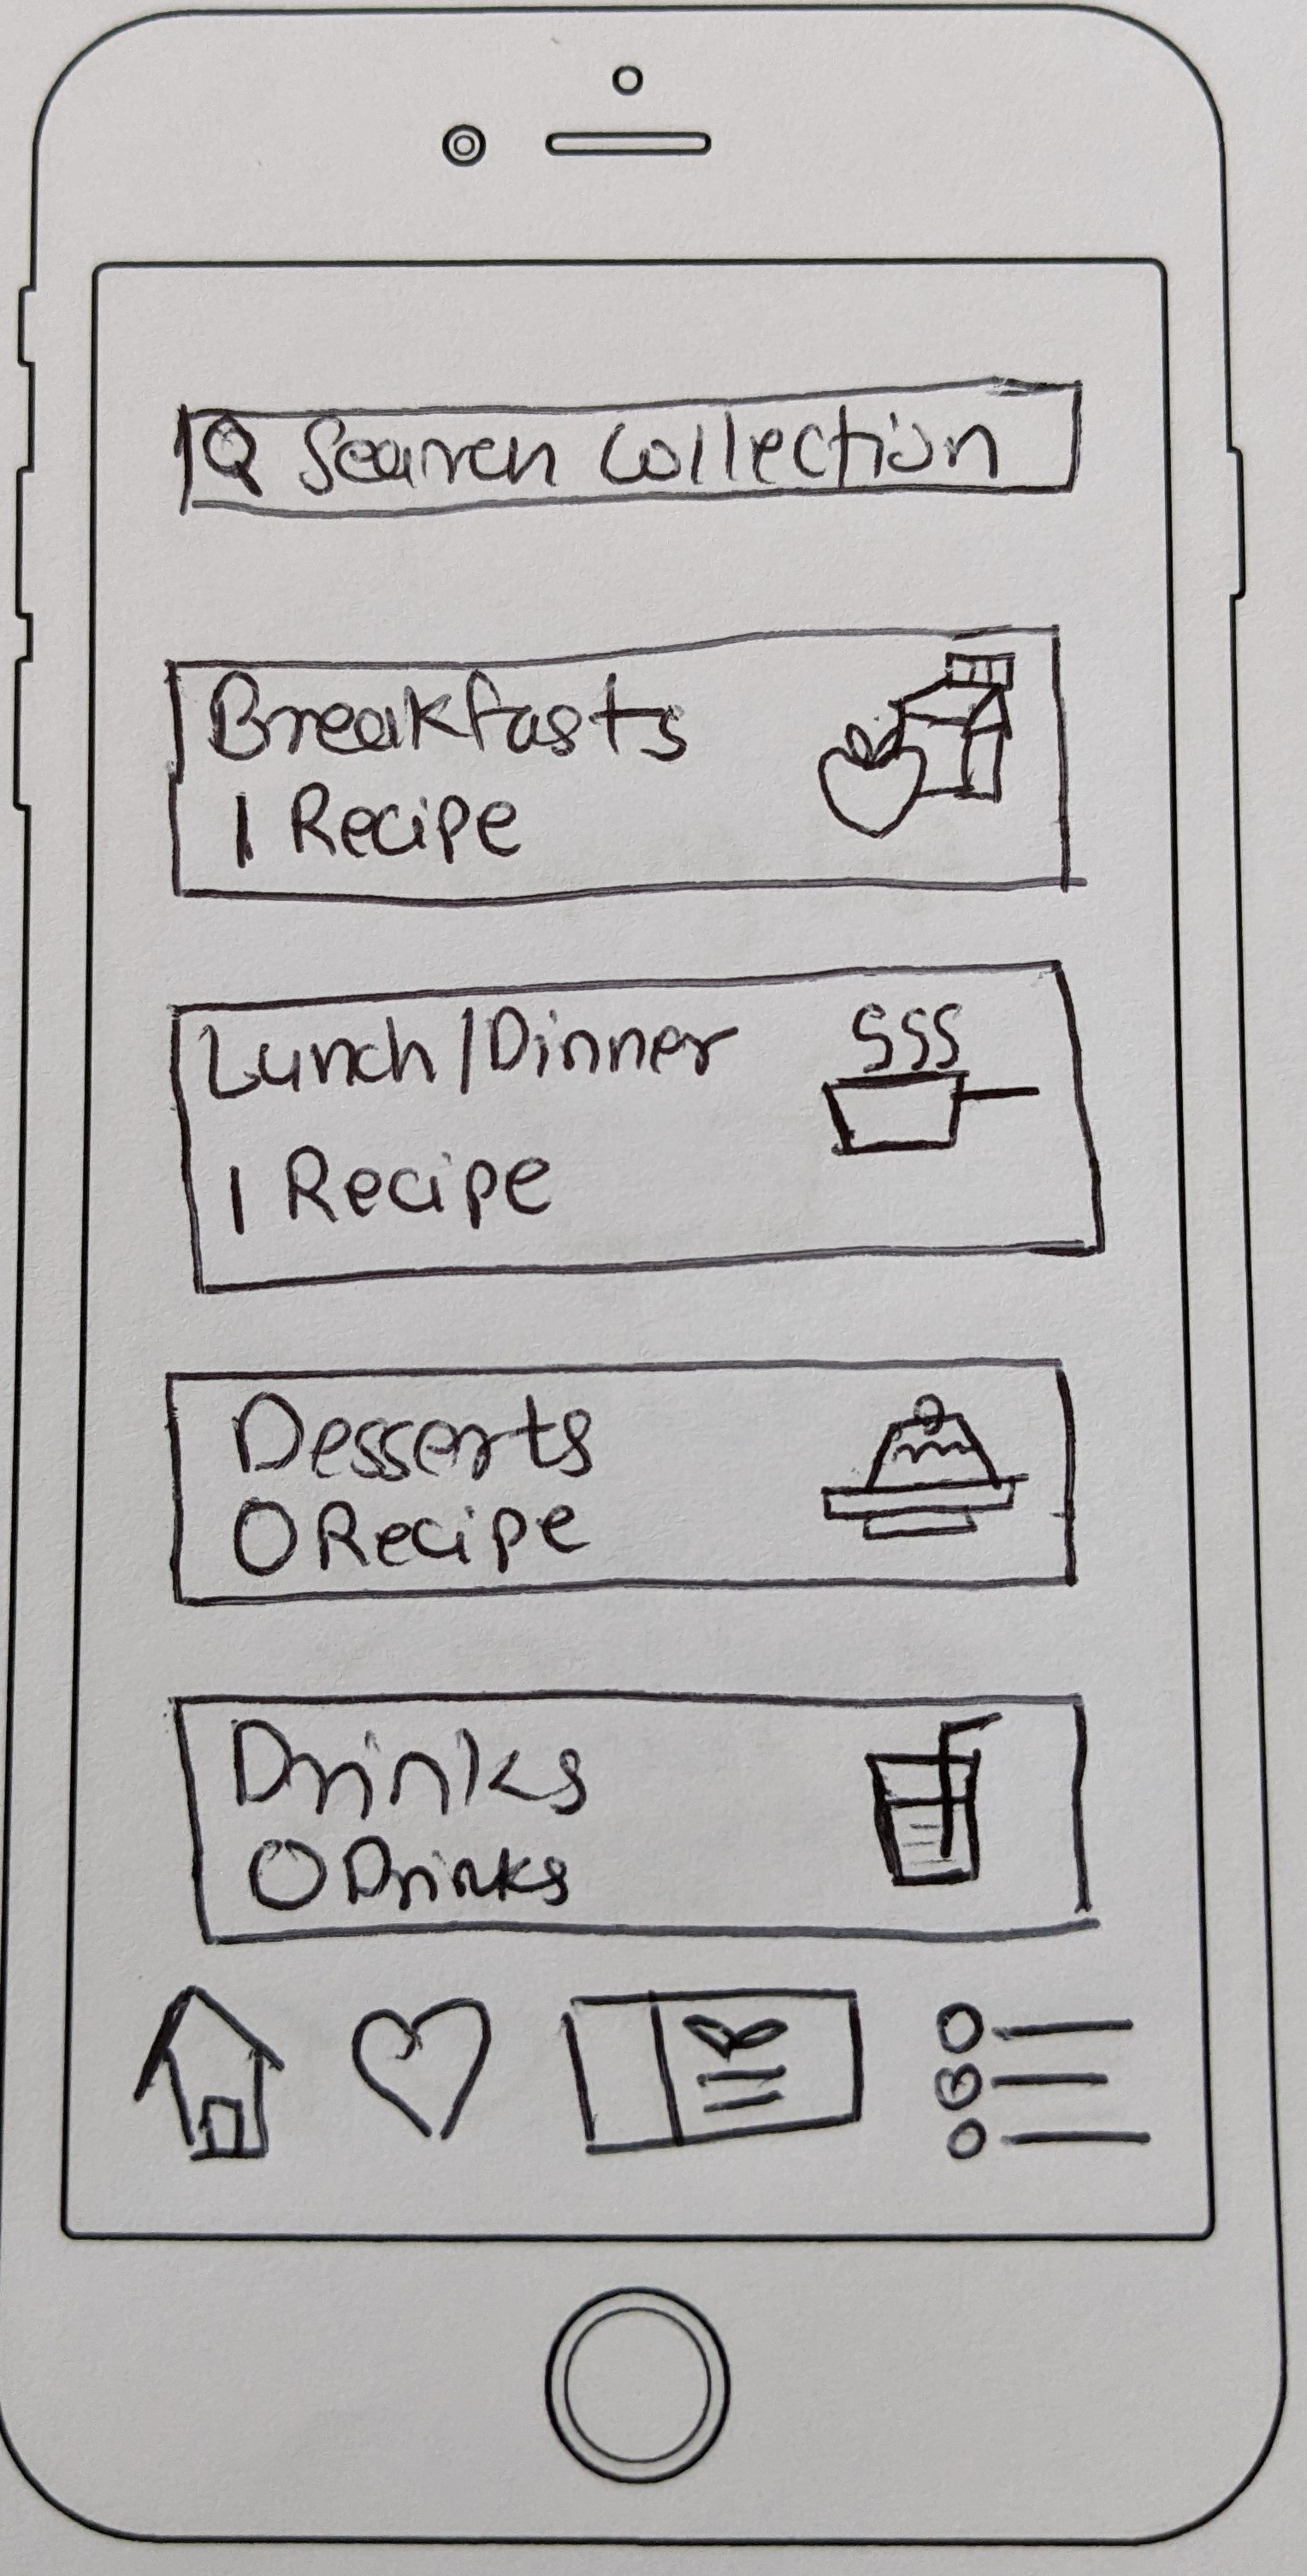 Search Collection
Breakfasts
1 Recipe
Lunch/Dinner
1 Recipe
Desserts
0 Recipe
Drinks
0 Drinks